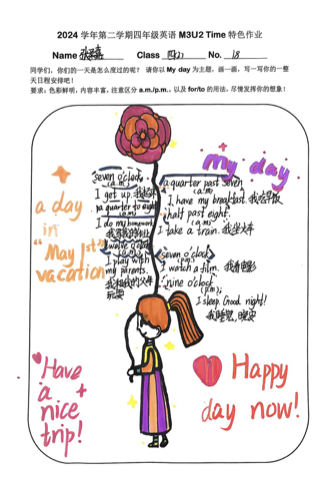 2024 学年第二学期四年级英语 M3U2 Time 特色作业
Name Class 四(2) No. 18
同学们，你们的一天是怎么度过的呢？ 请你以 My day 为主题，画一画，写一写你的一整
天日程安排吧！
要求：色彩鲜明，内容丰富，注意区分 a.m./p.m.，以及 for/to 的用法，尽情发挥你的想象！
my day
a day
in
"May 1st"
vacation
seven o'clock.
(a.m)
I get up.
a quarter to eight
(a.m)
I do my homework.
twelve o'clock
I play with
my parents.
a quarter past seven
(a.m)
I have my breakfast. 我吃早饭
half past eight.
(a.m)
I take a train. 我坐火车
seven o'clock
(p.m)
I watch a film. 我看电影
nine o'clock
(p.m)
I sleep. Good night!
我睡觉,晚安
Have
a
nice
trip!
Happy
day now!